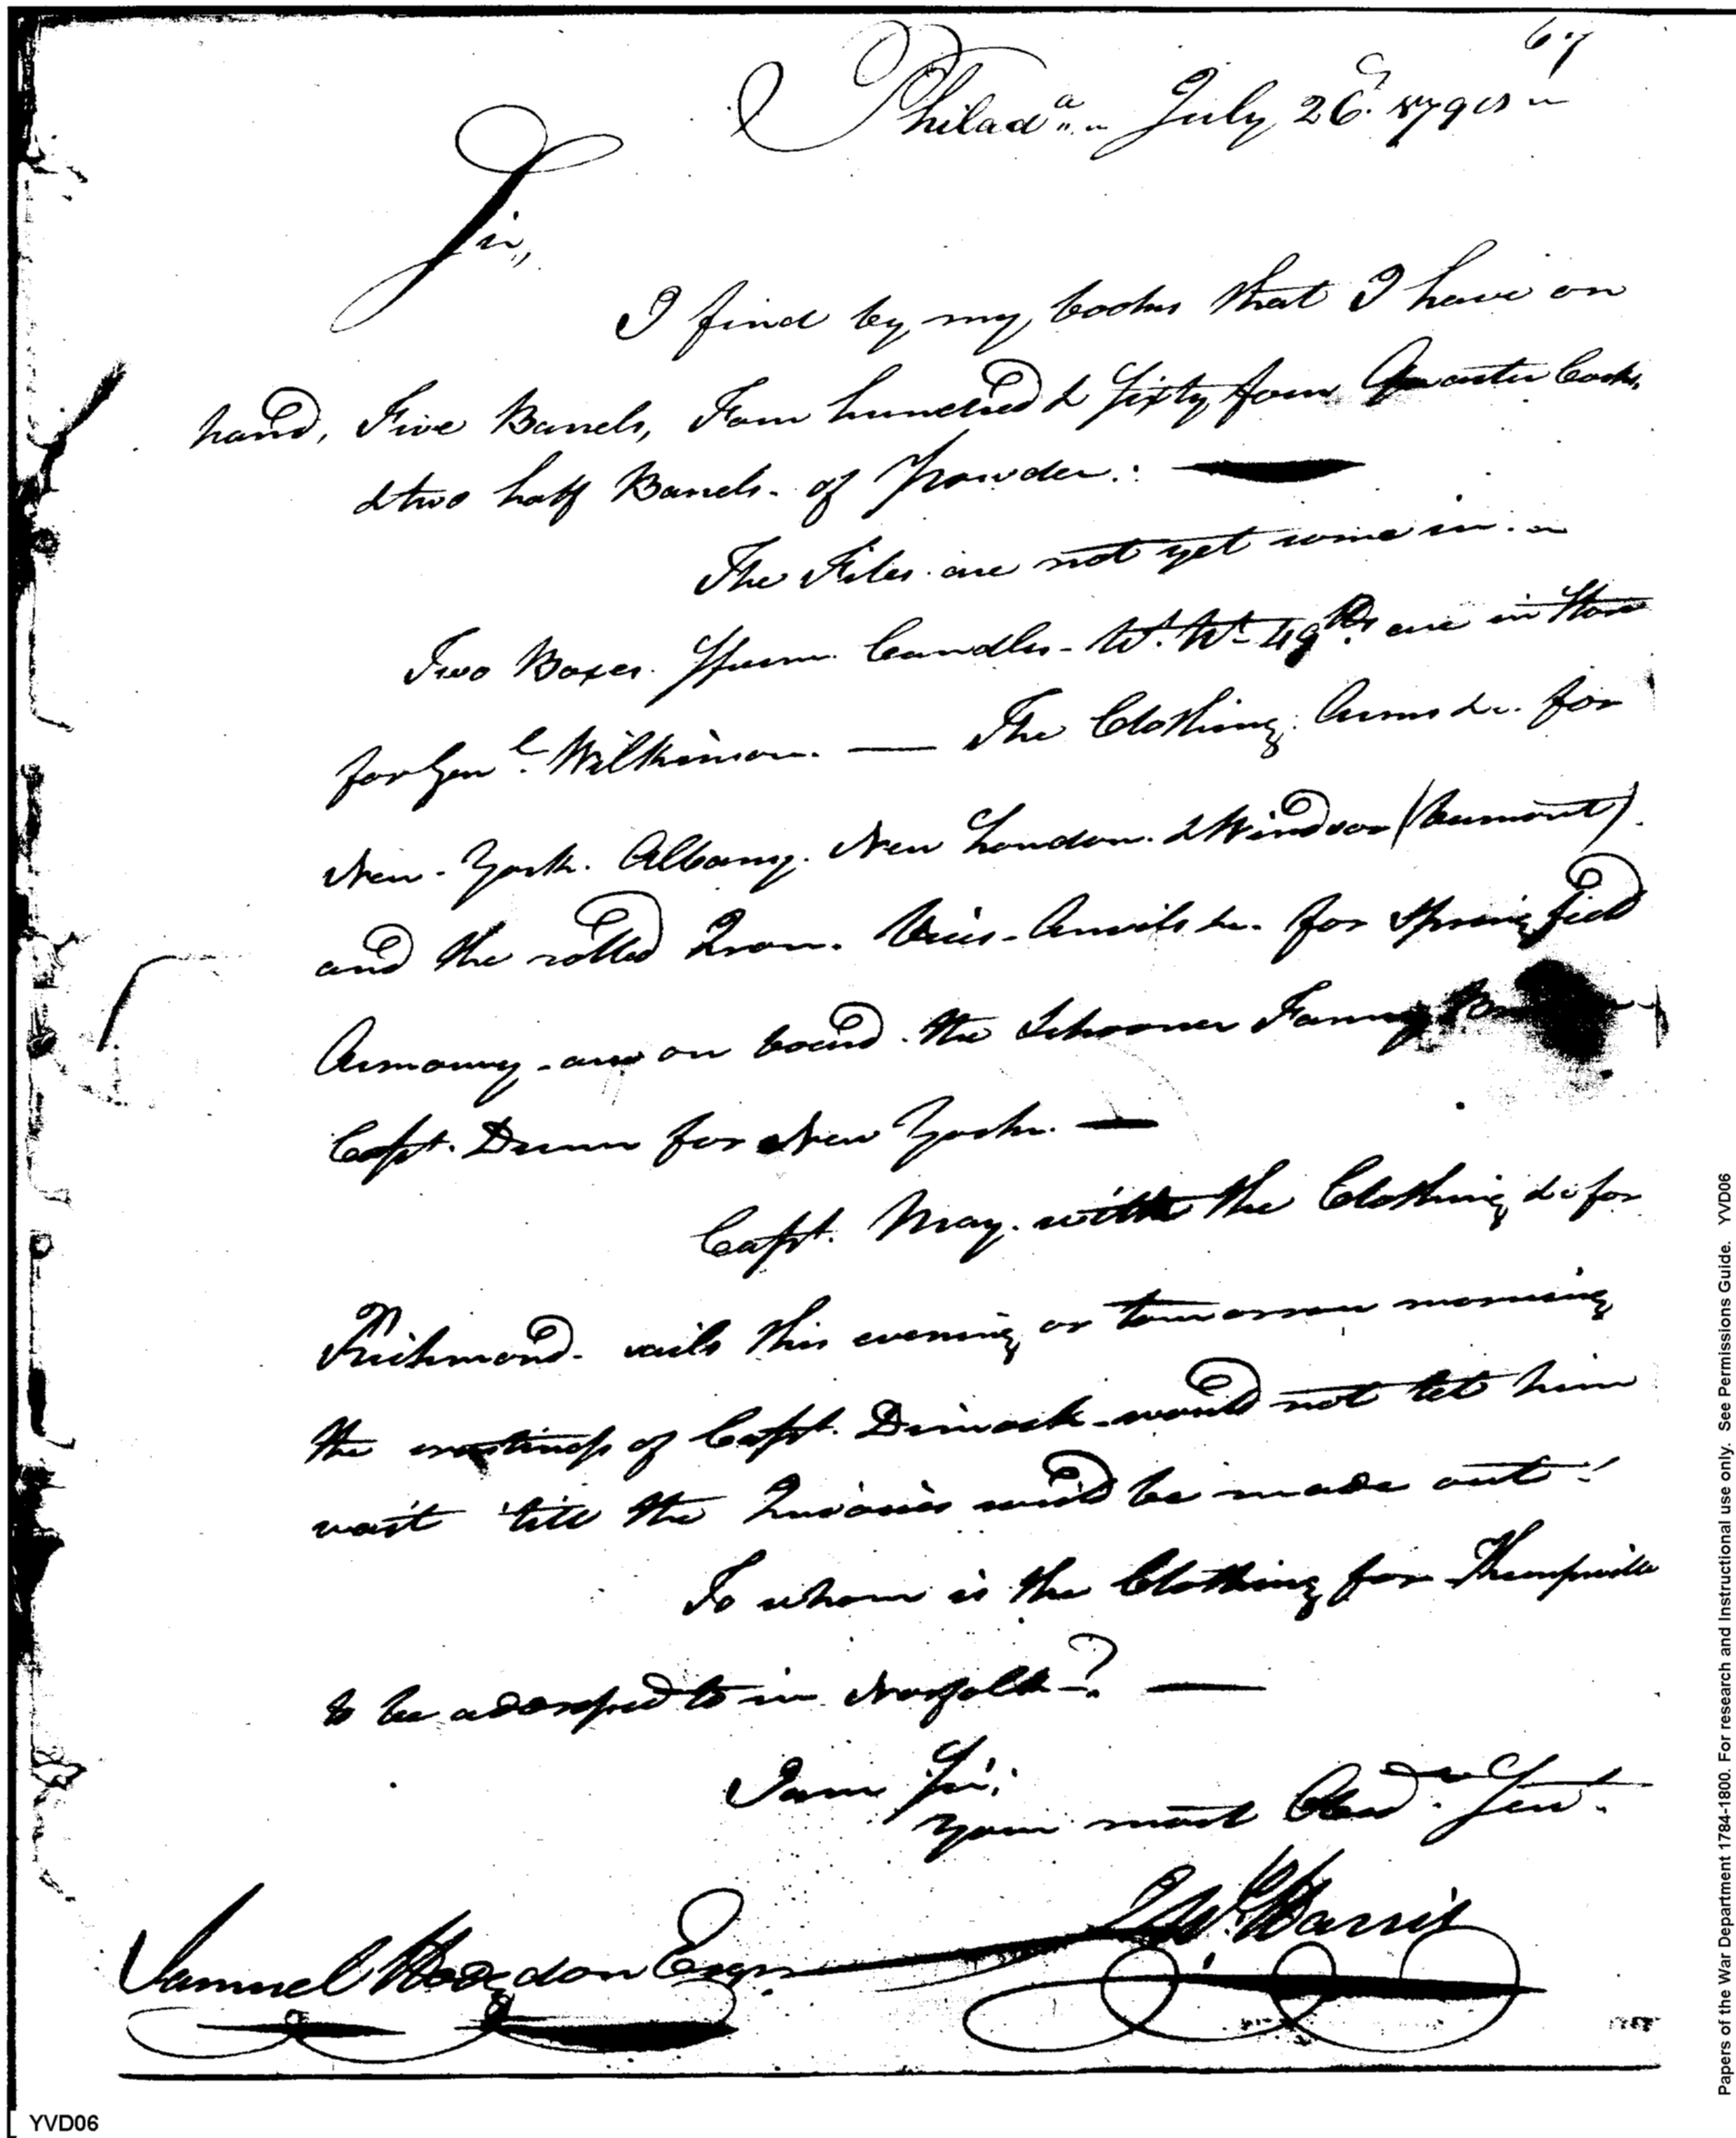 67
Philad.a July 26. 1798
Sir,
I find by my books that I have on
hand, Five Barrels, Four hundred & Sixty four Quarter Casks,
& two half Barrels of Powder:
The Files are not yet come in.
Two Boxes Sperm. Candles - Wt. 49 lbs. are in Store
for Genl. Wilkinson. — The Clothing, Arms &c. for
New-York. Albany. New London. & Windsor (Vermont)
and the rolled Iron. Vices - Anvils &c. for Springfield
Armoury - are on board the Schooner Fanny
Capt. Dunn for New York. —
Capt. May. with the Clothing &c for
Richmond. sails this evening or tomorrow morning
the of Capt. Dimock - would not let him
wait 'till the Invoices could be made out!
To whom is the Clothing for
to be addressed to in Norfolk? —
I am Sir;
Your most Obed. Serv.
Harris
Samuel Hodgdon Esqr.
Papers of the War Department 1784-1800. For research and Instructional use only. See Permissions Guide. YVD06
YVD06